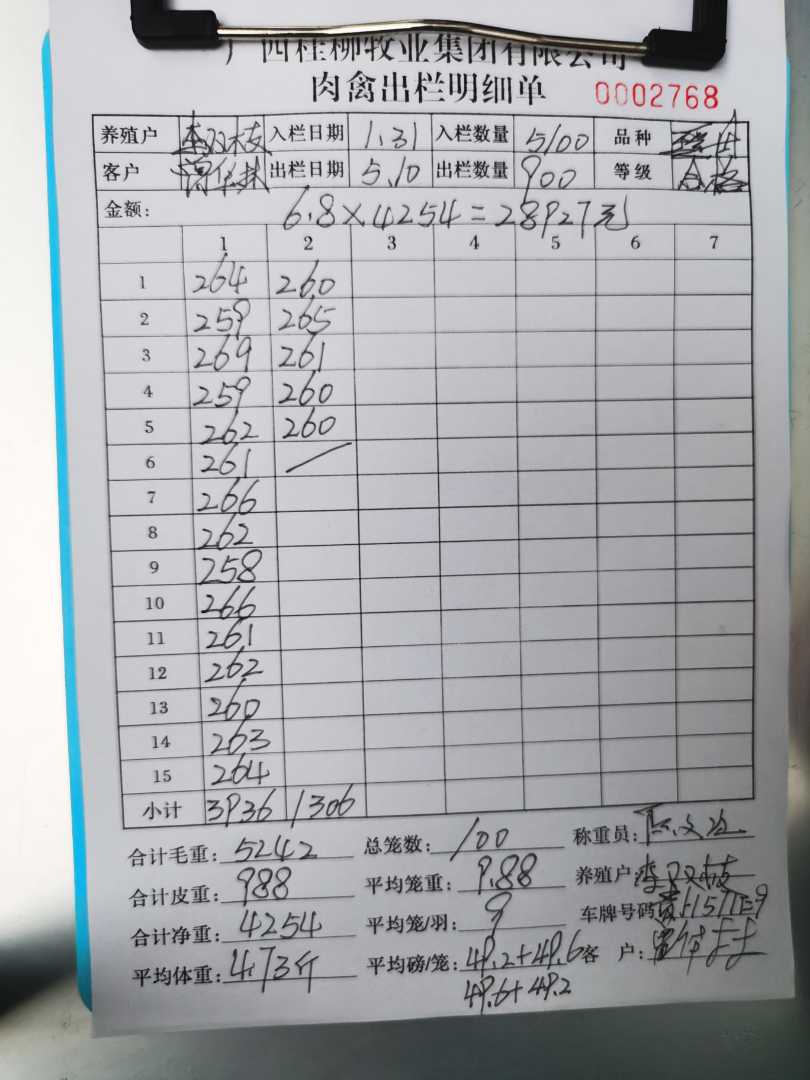 广西桂柳牧业集团有限公司
肉禽出栏明细单 0002768
养殖户 李双枝 入栏日期 1.31 入栏数量 5100 品种
客户 出栏日期 5.10 出栏数量 900 等级 合格
金额: 6.8×4254=28927元
1 2 3 4 5 6 7
1 264 260
2 259 265
3 269 261
4 259 260
5 262 260
6 261 /
7 266
8 262
9 258
10 266
11 261
12 262
13 260
14 263
15 264
小计 3936 1306
合计毛重: 5242 总笼数: 100 称重员:
合计皮重: 988 平均笼重: 9.88 养殖户: 李双枝
合计净重: 4254 平均笼/羽: 9 车牌号码
平均体重: 4.73斤 平均磅/笼: 49.2+49.6 客 户:
49.6+49.2